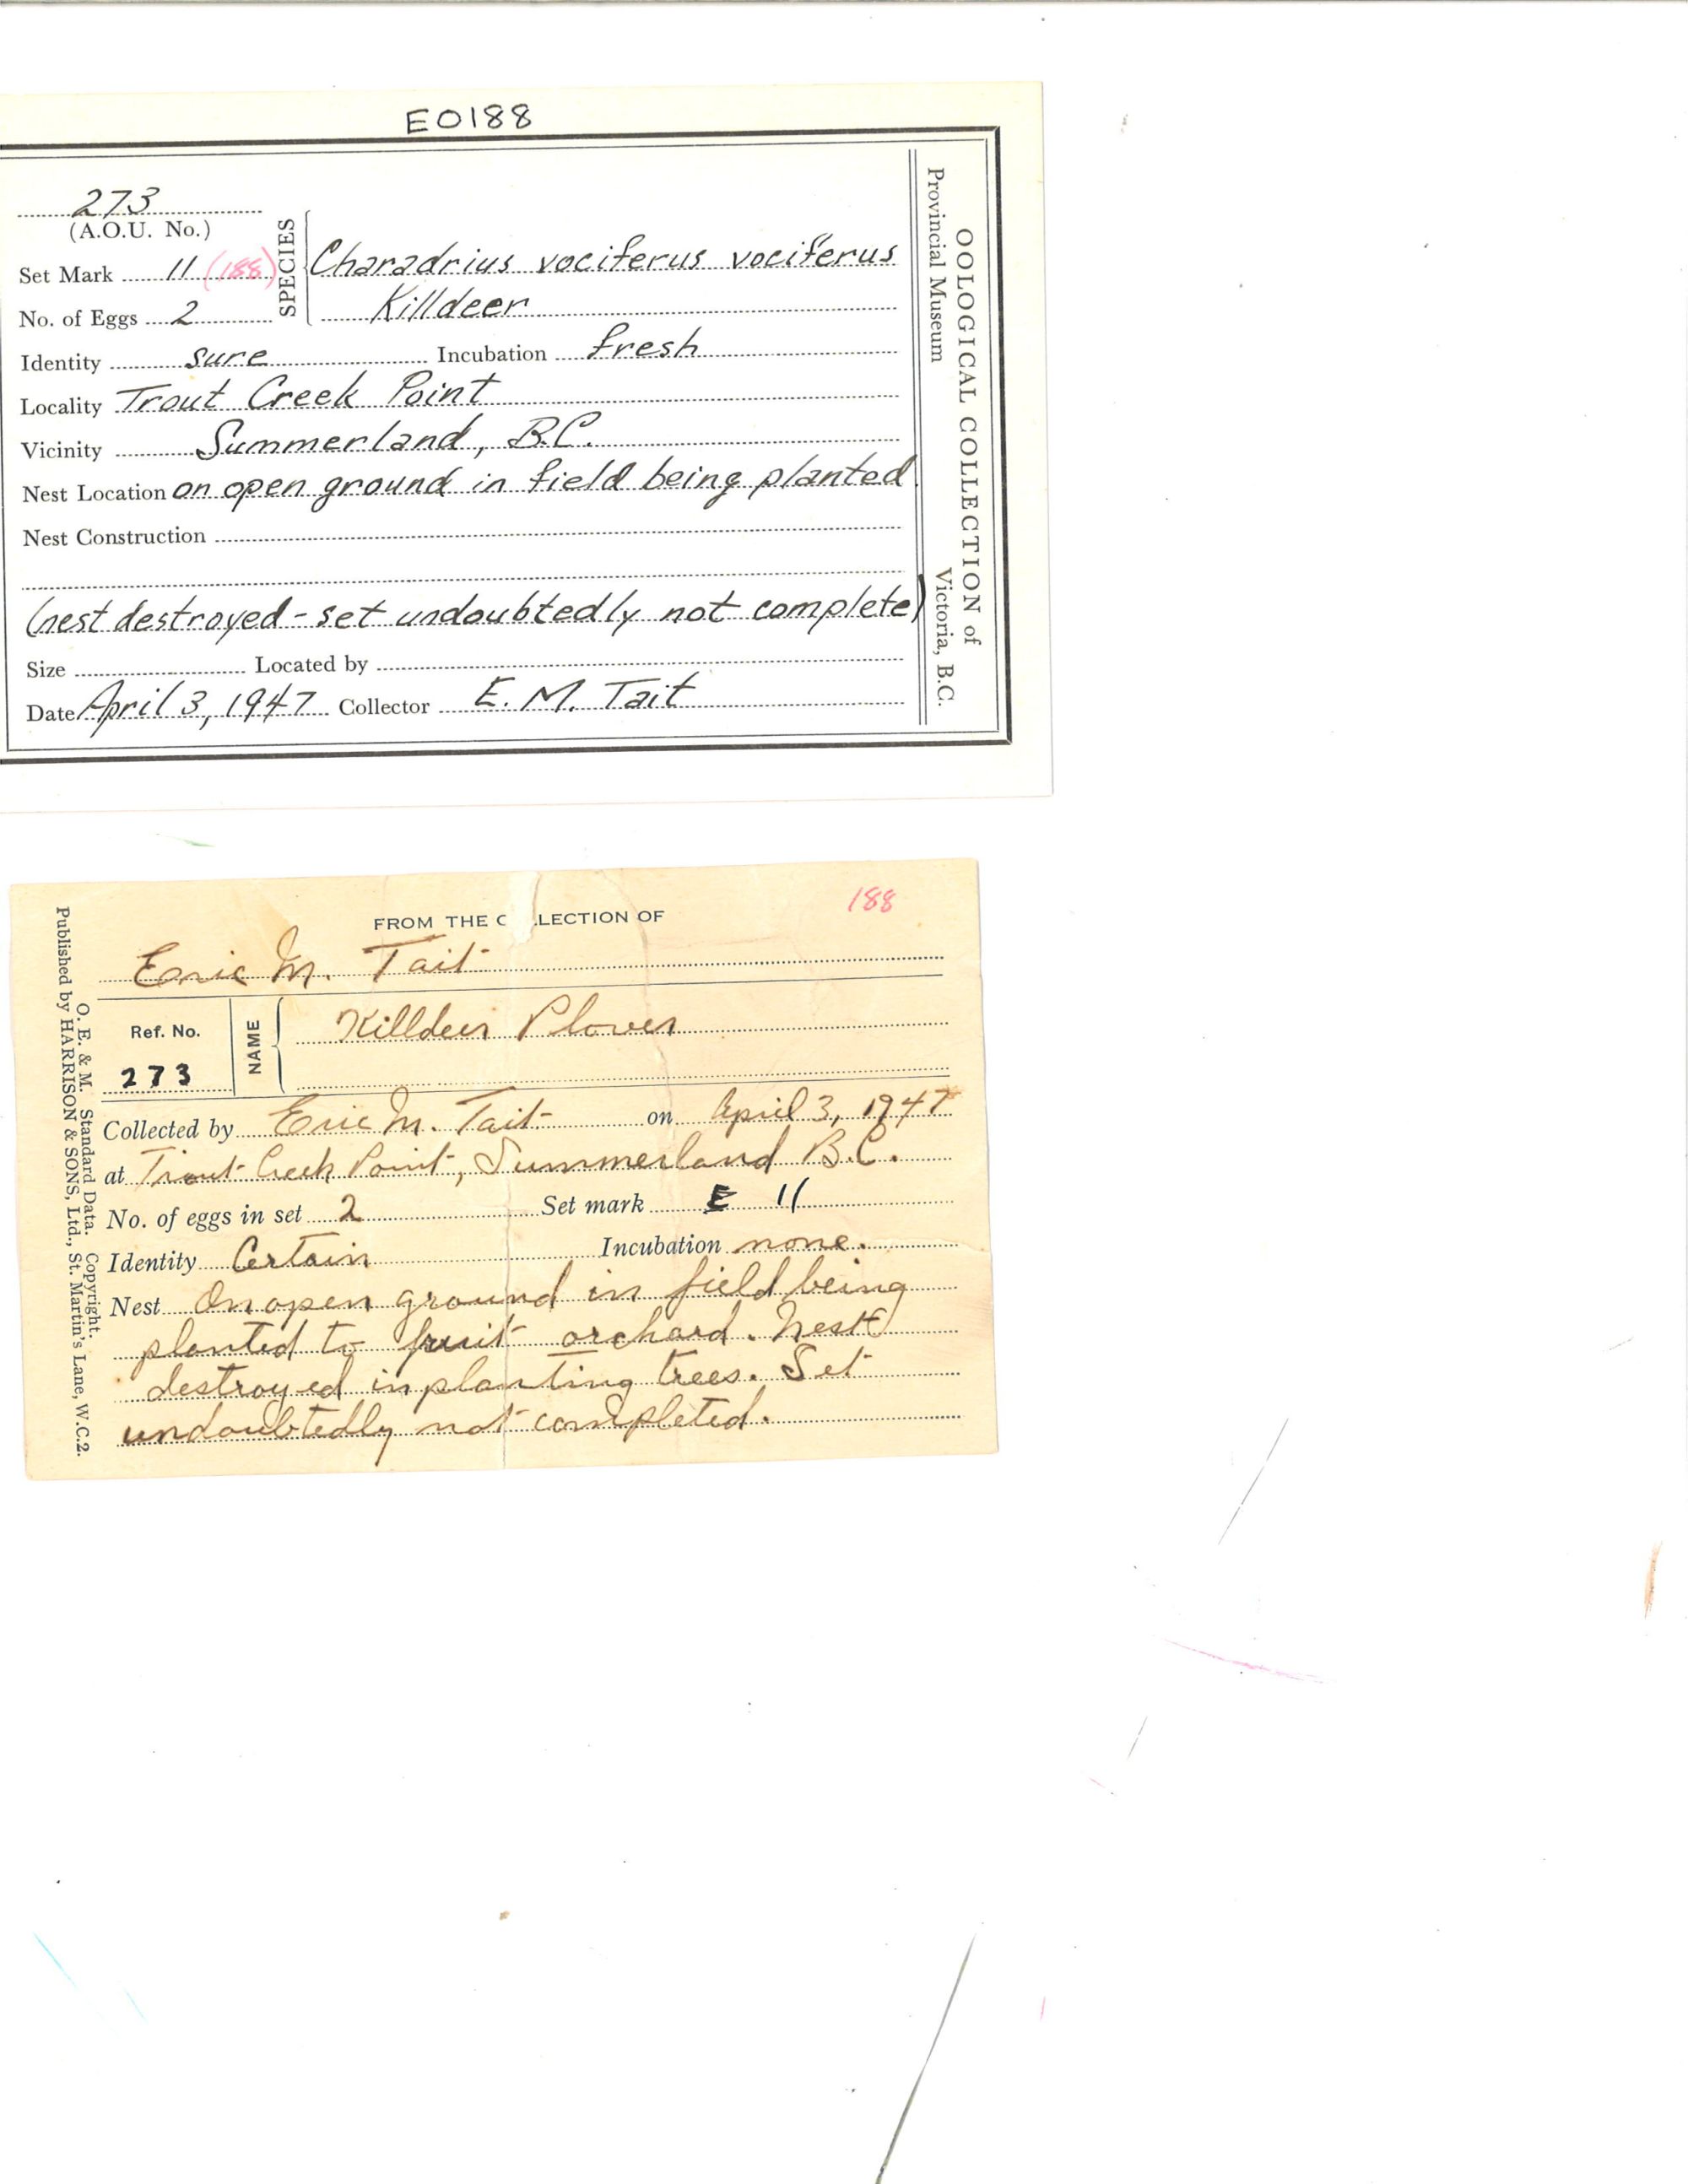 E0188
273
(A.O.U. No.)
Set Mark 11 (188)
No. of Eggs 2
SPECIES
Charadrius vociferus vociferus
Killdeer
Identity sure Incubation fresh
Locality Trout Creek Point
Vicinity Summerland, B.C.
Nest Location on open ground in field being planted
Nest Construction
(nest destroyed - set undoubtedly not complete)
Size Located by
Date April 3, 1947 Collector E. M. Tait
OOLOGICAL COLLECTION of
Provincial Museum Victoria, B.C.
188
FROM THE C LLECTION OF
Eric M. Tait
Ref. No.
273
NAME
Killdeer Plover
Collected by Eric M. Tait on April 3, 1947
at Trout Creek Point, Summerland B.C.
No. of eggs in set 2 Set mark E 11
Identity Certain Incubation none.
Nest On open ground in field being
planted to fruit orchard. Nest
destroyed in planting trees. Set
undoubtedly not completed.
O. E. & M. Standard Data. Copyright.
Published by HARRISON & SONS, Ltd., St. Martin's Lane, W.C.2.